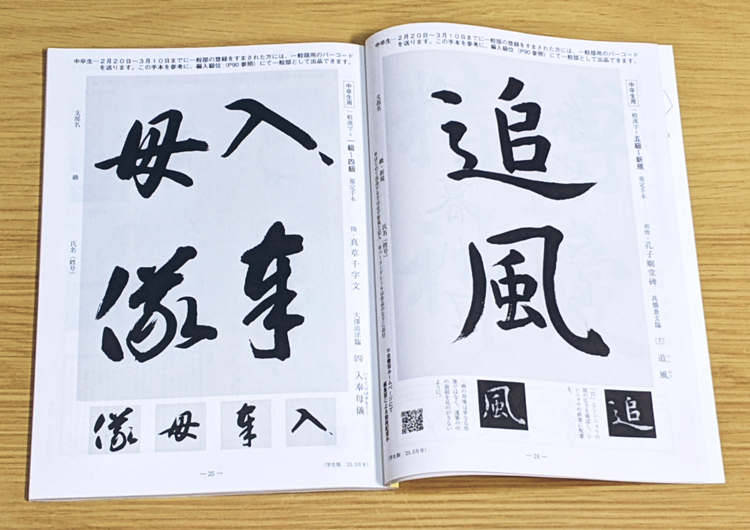 中卒生―2月20日～3月10日までに一般部の登録をすまされた方には、一般部用のバーコード
を送ります。この手本を参考に、編入級位（P90参照）にて一般部として出品できます。
中卒生用
一般漢字・五級～新規 規定手本
初唐・孔子廟堂碑
追風
追風
支部名
級・新規
氏名（雅号）
風
追
― 24 ―
（学生版 '23.3月号）
中卒生―2月20日～3月10日までに一般部の登録をすまされた方には、一般部用のバーコード
を送ります。この手本を参考に、編入級位（P90参照）にて一般部として出品できます。
中卒生用
一般漢字・一級～四級 規定手本
隋・真草千字文
入奉母儀
入奉
母儀
支部名
級
氏名（雅号）
儀
母
奉
入
― 25 ―
（学生版 '23.3月号）